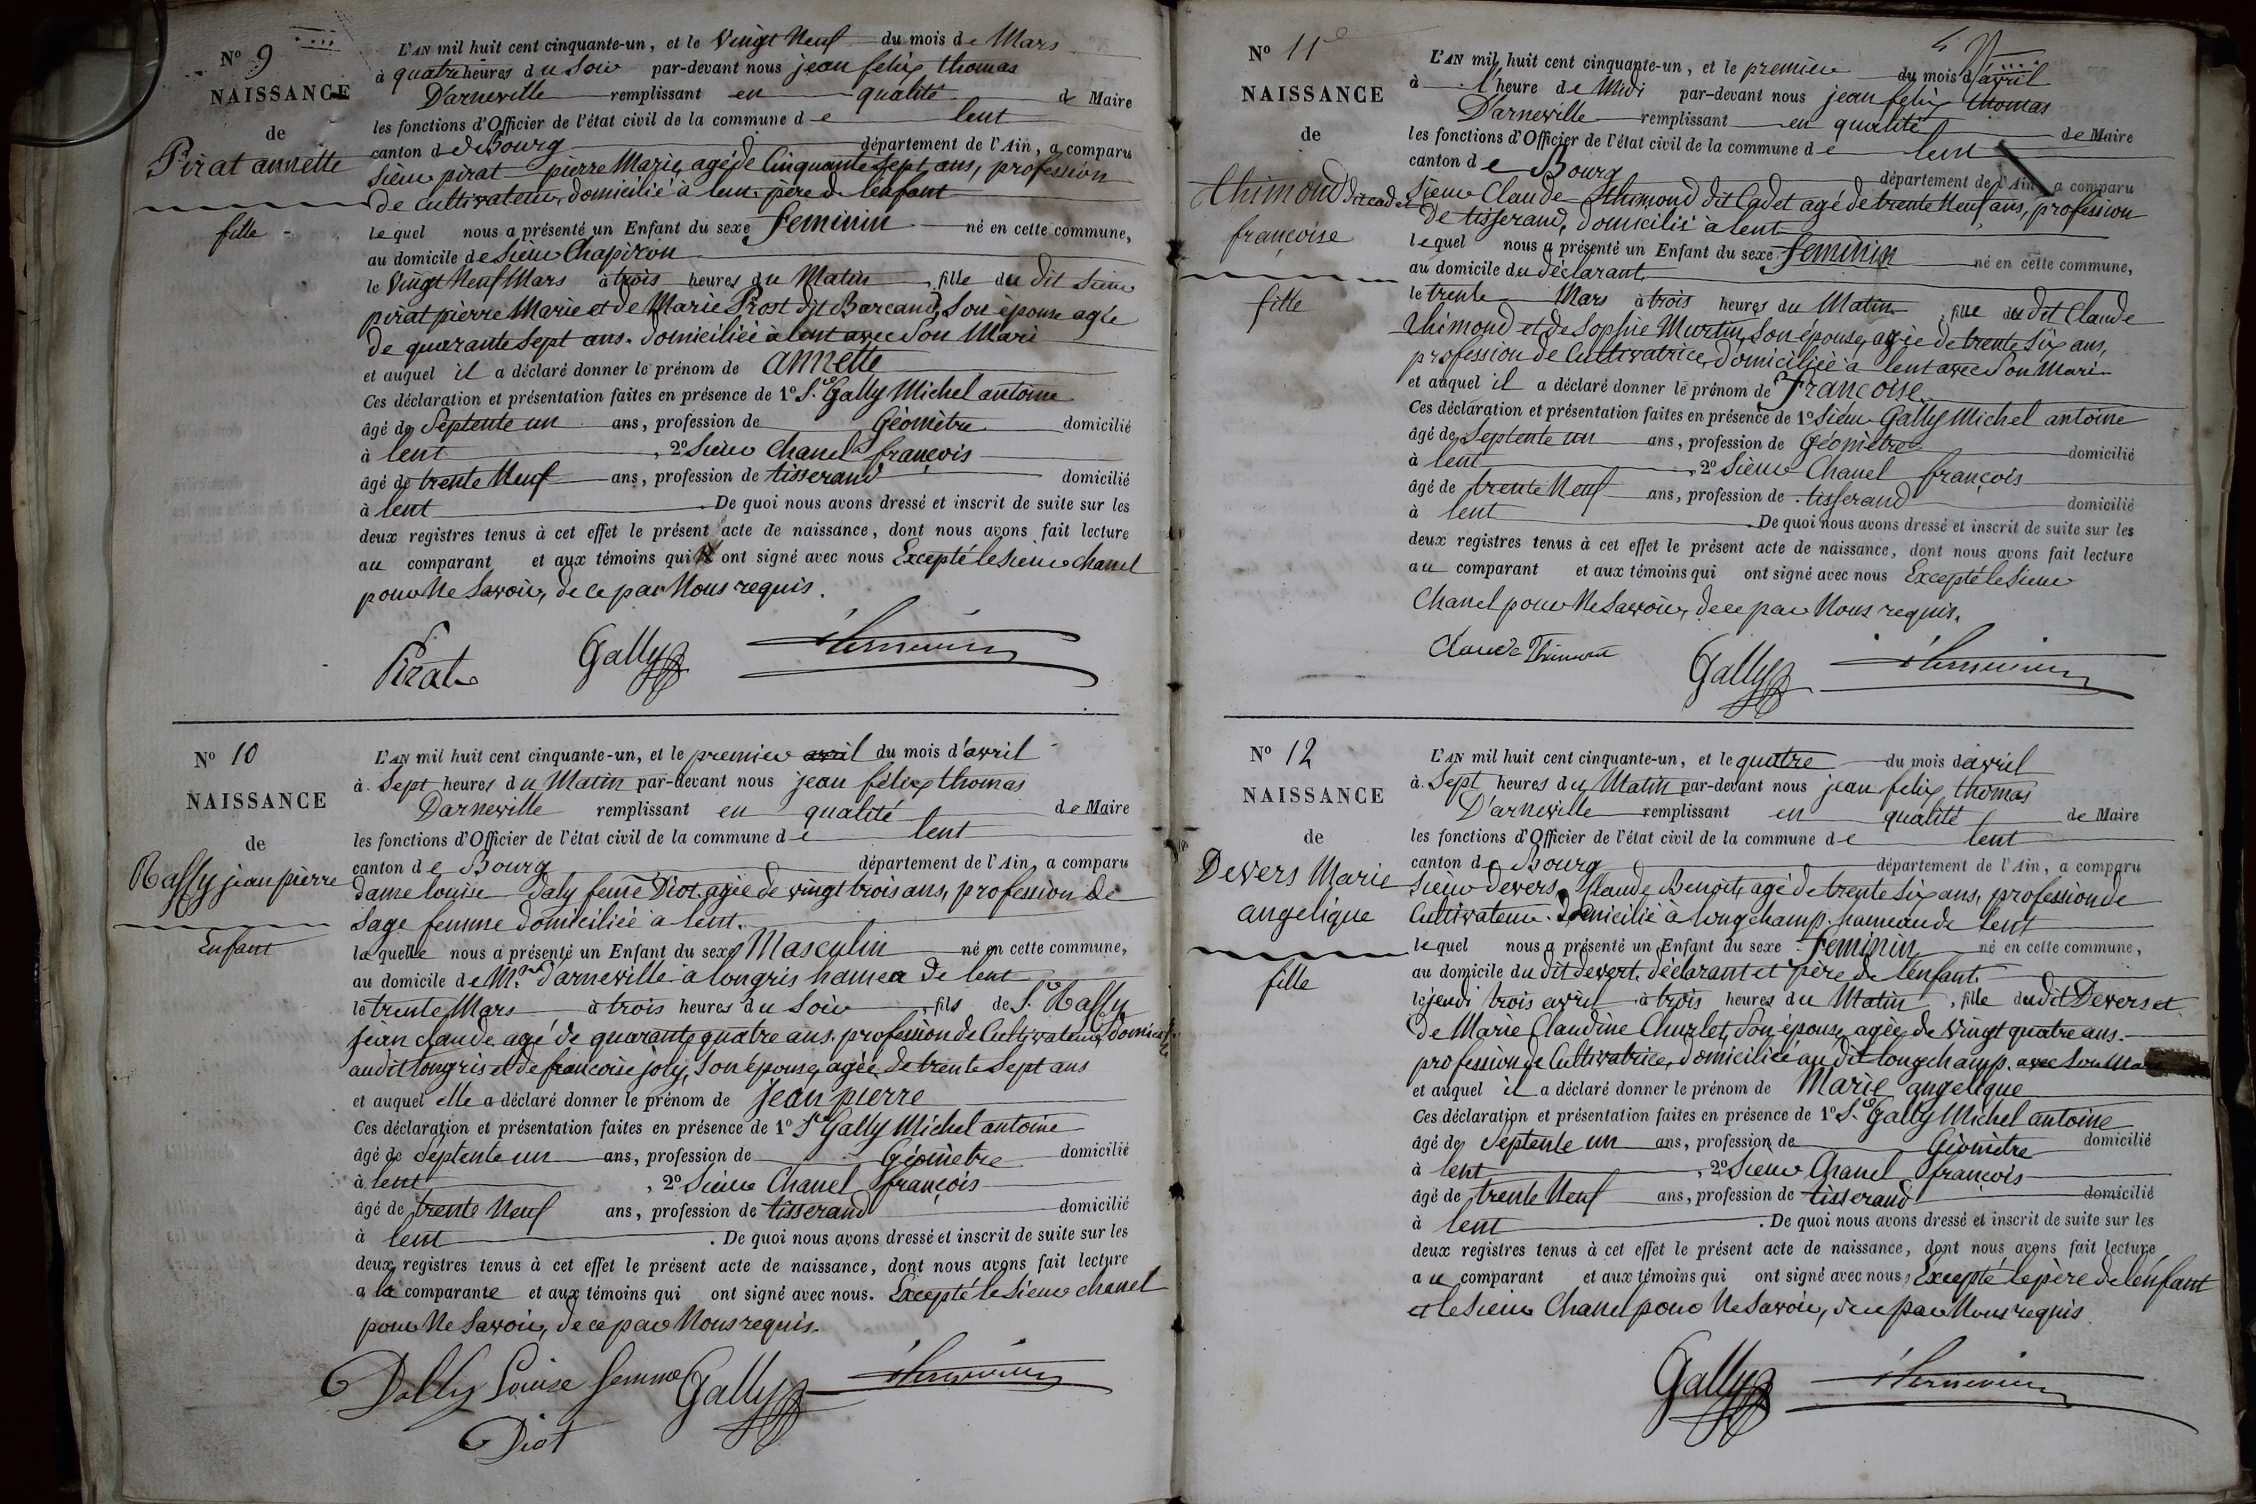 N° 9
NAISSANCE
de
Pirat annette
fille
L'AN mil huit cent cinquante-un, et le Vingt Neuf du mois de Mars
à quatre heures du Soir par-devant nous jean felix thomas
D'arneville remplissant en qualité de Maire
les fonctions d'Officier de l'état civil de la commune de lent
canton d de Bourg département de l'Ain, a comparu
Sieur pirat pierre Marie, agé de Cinquante Sept ans, profession
de Cultivateur, domicilié à lent. père de l'enfant
lequel nous a présenté un Enfant du sexe Feminin né en cette commune,
au domicile de Sieur Chapiron
le Vingt Neuf Mars à trois heures du Matin, fille du dit Sieur
pirat pierre Marie et de Marie Prost dit Barcaud, Son épouse agée
de quarante Sept ans. domiciliée à lent avec Son Mari
et auquel il a déclaré donner le prénom de annette
Ces déclaration et présentation faites en présence de 1° Sr. Gally Michel antoine
âgé de Septente un ans, profession de Géomètre domicilié
à lent, 2° Sieur Chanel françois
âgé de trente Neuf ans, profession de tisserand domicilié
à lent. De quoi nous avons dressé et inscrit de suite sur les
deux registres tenus à cet effet le présent acte de naissance, dont nous avons fait lecture
au comparant et aux témoins qui ont signé avec nous Excepté le Sieur Chanel
pour Ne Savoir, de ce par Nous requis.
Pirat Gally
N° 10
NAISSANCE
de
Rassy jean pierre
Enfant
L'AN mil huit cent cinquante-un, et le premier avril du mois d'avril
à Sept heures du Matin par-devant nous jean félix thomas
Darneville remplissant en qualité de Maire
les fonctions d'Officier de l'état civil de la commune de lent
canton de Bourg département de l'Ain, a comparu
dame louise Daly feme Diot. agée de vingt trois ans, profession de
Sage femme domiciliée à lent.
laquelle nous a présenté un Enfant du sexe Masculin né en cette commune,
au domicile de Mr. d'arneville à longris hameau de lent
le trente Mars à trois heures du Soir, fils de Sr. Rassy
jean claude agé de quarante quatre ans. profession de Cultivateur, domicilié
audit longris et de francoise joly, Son épouse, agée de trente Sept ans
et auquel elle a déclaré donner le prénom de jean pierre
Ces déclaration et présentation faites en présence de 1° Sr Gally Michel antoine
âgé de Septente un ans, profession de Géomètre domicilié
à lent, 2° Sieur Chanel françois
âgé de trente Neuf ans, profession de tisserand domicilié
à lent. De quoi nous avons dressé et inscrit de suite sur les
deux registres tenus à cet effet le présent acte de naissance, dont nous avons fait lecture
a la comparante et aux témoins qui ont signé avec nous. Excepté le Sieur chanel
pour Ne Savoir, de ce par Nous requis.
Dally Louise femme Gally
Diot
N° 11
NAISSANCE
de
Thimond dit cadet
françoise
fille
L'AN mil huit cent cinquante-un, et le premier du mois d'avril
à l'heure de Midi par-devant nous jean felix thomas
D'arneville remplissant en qualité de Maire
les fonctions d'Officier de l'état civil de la commune de lent
canton de Bourg département de l'Ain, a comparu
Sieur Claude Thimond dit Cadet agé de trente Neuf ans, profession
de tisserand, domicilié à lent
lequel nous a présenté un Enfant du sexe feminin né en cette commune,
au domicile du déclarant
le trente Mars à trois heures du Matin, fille du dit Claude
Thimond et de Sophie Murtin, Son épouse, agée de trente Six ans,
profession de Cultivatrice, domiciliée à lent avec Son Mari
et auquel il a déclaré donner le prénom de Françoise
Ces déclaration et présentation faites en présence de 1° Sieur Gally Michel antoine
âgé de Septente un ans, profession de Géomètre domicilié
à lent, 2° Sieur Chanel françois
âgé de trente Neuf ans, profession de tisserand domicilié
à lent. De quoi nous avons dressé et inscrit de suite sur les
deux registres tenus à cet effet le présent acte de naissance, dont nous avons fait lecture
au comparant et aux témoins qui ont signé avec nous Excepté le Sieur
Chanel pour Ne Savoir, de ce par Nous requis.
Claude Thimond Gally
N° 12
NAISSANCE
de
Devers Marie
angelique
fille
L'AN mil huit cent cinquante-un, et le quatre du mois d'avril
à Sept heures du Matin par-devant nous jean felix thomas
D'arneville remplissant en qualité de Maire
les fonctions d'Officier de l'état civil de la commune de lent
canton de Bourg département de l'Ain, a comparu
Sieur devers Claude Benoit, agé de trente Six ans, profession de
Cultivateur. domicilié à longchamp hameau de lent
lequel nous a présenté un Enfant du sexe Feminin né en cette commune,
au domicile du dit devert, déclarant et père de l'enfant.
le jeudi trois avril à trois heures du Matin, fille dudit Devers et
de Marie Claudine Churlet, Son épouse, agée de Vingt quatre ans.
profession de Cultivatrice, domiciliée au dit longchamp. avec Son Mari
et auquel il a déclaré donner le prénom de Marie angelique
Ces déclaration et présentation faites en présence de 1° Sr. Gally Michel antoine
âgé de Septente un ans, profession de Géomètre domicilié
à lent, 2° Sieur Chanel françois
âgé de trente Neuf ans, profession de tisserand domicilié
à lent. De quoi nous avons dressé et inscrit de suite sur les
deux registres tenus à cet effet le présent acte de naissance, dont nous avons fait lecture
au comparant et aux témoins qui ont signé avec nous, Excepté le père de l'enfant
et le Sieur Chanel pour Ne Savoir, de ce par Nous requis
Gally